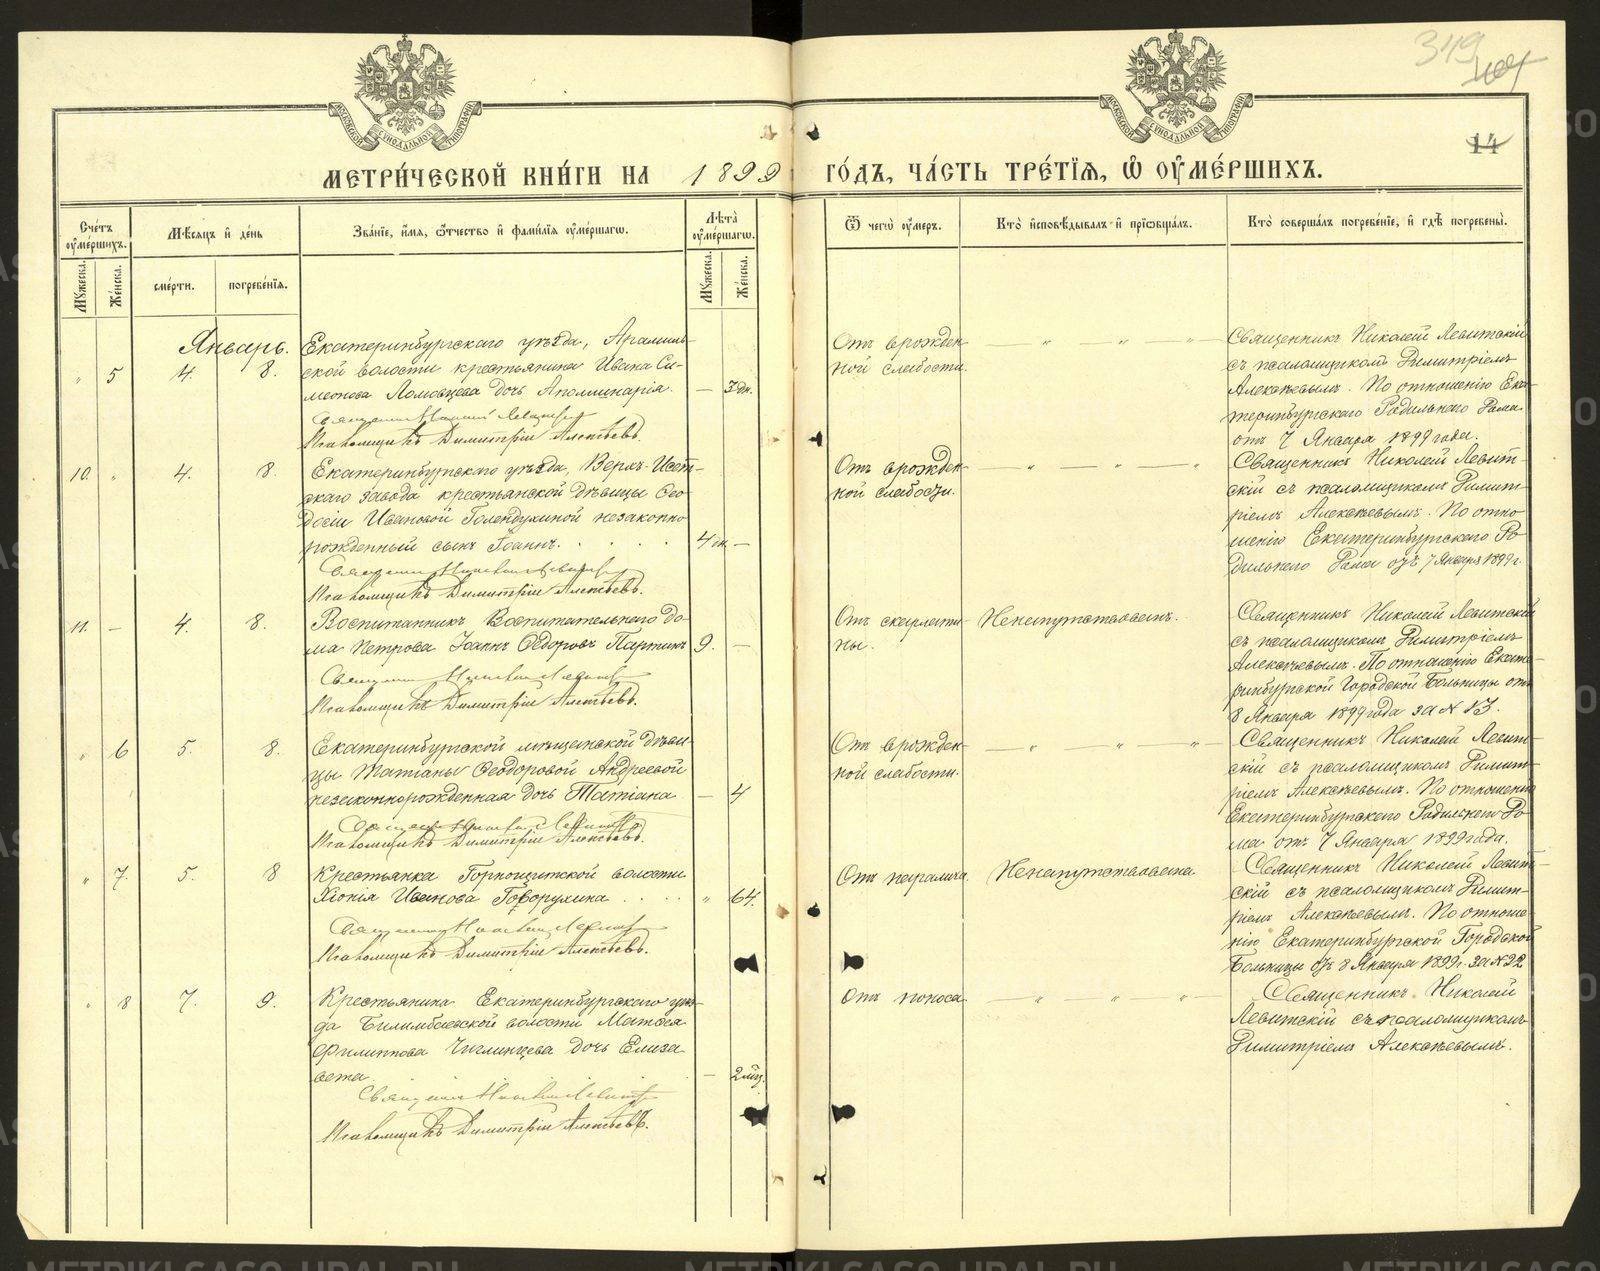 349
14
МЕТРИ́ЧЕСКОЙ КНИ́ГИ НА 1899 ГО́ДЪ, ЧА́СТЬ ТРЕ́ТІЯ, Ѿ ОУМЕ́РШИХЪ.
Сче́тъ оумє́ршихъ.
Мѣ́сяцъ и де́нь
Зва́ніе, и́мя, о́тчество и фами́лія оуме́ршагѡ.
Лѣта̀ оуме́ршагѡ.
Ѿ чегѡ̀ оу́меръ.
Кто̀ исповѣ́дывалъ и прїѡбща́лъ.
Кто̀ соверша́лъ погребе́ніе, и гдѣ̀ погребены̀.
Мꙋ́жеска.
Же́нска.
сме́рти.
погребе́нїя.
Мꙋ́жеска.
Же́нска.
Январь.
" 5 4. 8.
Екатеринбургскаго уѣзда, Арамиль-
ской волости крестьянина Ивана Си-
меонова Ломовцева дочь Аполинарія. — 3 дн.
Священникъ Николай Левитскій
Псаломщикъ Димитрій Алексѣевъ.
Отъ врожден-
ной слабости.
— " — " — " —
Священникъ Николай Левитскій
съ псаломщикомъ Димитріемъ
Алексѣевымъ. По отношенію Ека-
теринбургскаго Родильнаго Дома
отъ 7 Января 1899 года.
10. " 4. 8.
Екатеринбургскаго уѣзда, Верхъ-Исет-
скаго завода крестьянской дѣвицы Ѳео-
досіи Ивановой Голендухиной незаконно
рожденный сынъ Іоаннъ. . . . . 4 дн. —
Священникъ Николай Левитскій
Псаломщикъ Димитрій Алексѣевъ.
Отъ врожден-
ной слабости.
— " — " — "
Священникъ Николай Левит-
скій съ псаломщикомъ Димит-
ріемъ Алексѣевымъ. По отно-
шенію Екатеринбургскаго Ро-
дильнаго Дома отъ 7 Января 1899 г.
11. — 4. 8.
Воспитанникъ Воспитательнаго до-
ма Петрова Іоаннъ Ѳедоровъ 9. —
Священникъ Николай Левитскій
Псаломщикъ Димитрій Алексѣевъ.
Отъ скарлати-
ны.
Ненапутствованъ.
Священникъ Николай Левитскій
съ псаломщикомъ Димитріемъ
Алексѣевымъ. По отношенію Екате-
ринбургской Городской Больницы отъ
8 Января 1899 года за № 13.
" 6 5. 8.
Екатеринбургской мѣщанской дѣви-
цы Татіаны Ѳеодоровой Андреевой
незаконнорожденная дочь Татіана — 4
Священникъ Николай Левитскій
Псаломщикъ Димитрій Алексѣевъ.
Отъ врожден-
ной слабости.
— " — " — " —
Священникъ Николай Левит-
скій съ псаломщикомъ Димит-
ріемъ Алексѣевымъ. По отношенію
Екатеринбургскаго Родильнаго До-
ма отъ 7 Января 1899 года.
" 7. 5. 8
Крестьянка Горнощитской волости
Хіонія Иванова . . . . " 64.
Священникъ Николай Левитскій
Псаломщикъ Димитрій Алексѣевъ.
Отъ паралича.
Ненапутствована
Священникъ Николай Левит-
скій съ псаломщикомъ Димит-
ріемъ Алексѣевымъ. По отноше-
нію Екатеринбургской Городской
Больницы отъ 8 Января 1899 г. за № 22
" 8 7. 9.
Крестьянина Екатеринбургскаго уѣз-
да Билимбаевской волости Матѳея
Филиппова Чиглинцева дочь Елиза-
вета. — 2 мѣс.
Священникъ Николай Левитскій
Псаломщикъ Димитрій Алексѣевъ.
Отъ поноса.
— " — " — " —
Священникъ Николай
Левитскій съ псаломщикомъ
Димитріемъ Алексѣевымъ.
METRIKI.GASO-URAL.RU